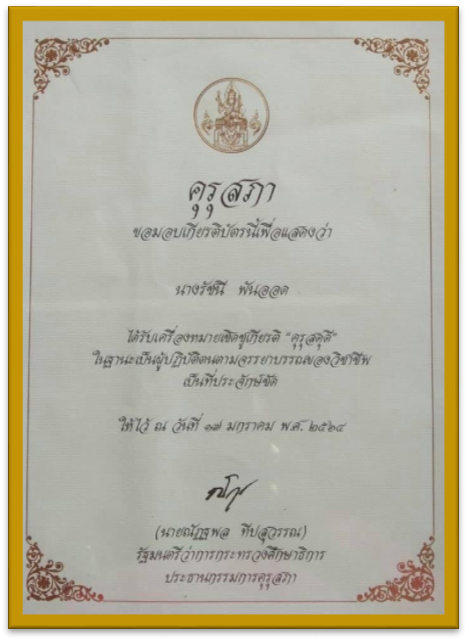 คุรุสภา
ขอมอบเกียรติบัตรนี้เพื่อแสดงว่า
นางรัชนี พันออด
ได้รับเครื่องหมายเชิดชูเกียรติ "คุรุสดุดี"
ในฐานะเป็นผู้ปฏิบัติตนตามจรรยาบรรณของวิชาชีพ
เป็นที่ประจักษ์ชัด
ให้ไว้ ณ วันที่ ๑๗ มกราคม พ.ศ. ๒๕๖๔
(นายณัฏฐพล ทีปสุวรรณ)
รัฐมนตรีว่าการกระทรวงศึกษาธิการ
ประธานกรรมการคุรุสภา